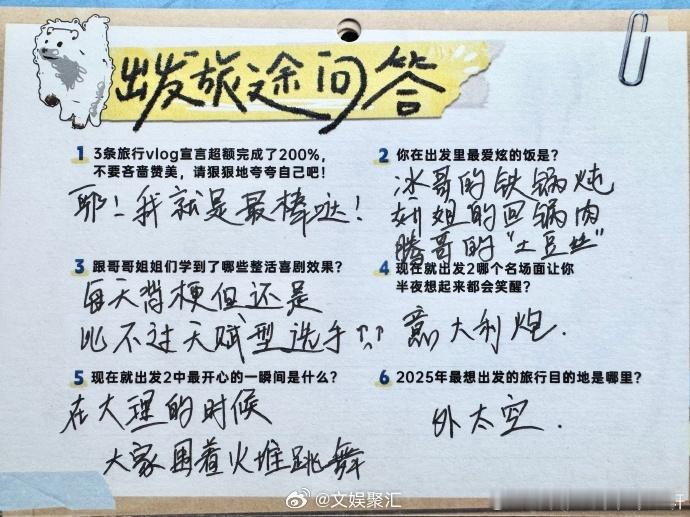 出发旅途问答
1 3条旅行vlog宣言超额完成了200%,
不要吝啬赞美,请狠狠地夸夸自己吧!
耶!我就是最棒哒!
2 你在出发里最爱炫的饭是?
冰哥的铁锅炖
姐的回锅肉
腾哥的“土豆丝”
3 跟哥哥姐姐们学到了哪些整活喜剧效果?
每天背梗但还是
比不过天赋型选手!!
4 现在就出发2哪个名场面让你
半夜想起来都会笑醒?
意大利炮.
5 现在就出发2中最开心的一瞬间是什么?
在大理的时候
大家围着火堆跳舞
6 2025年最想出发的旅行目的地是哪里?
外太空.
@文娱聚汇